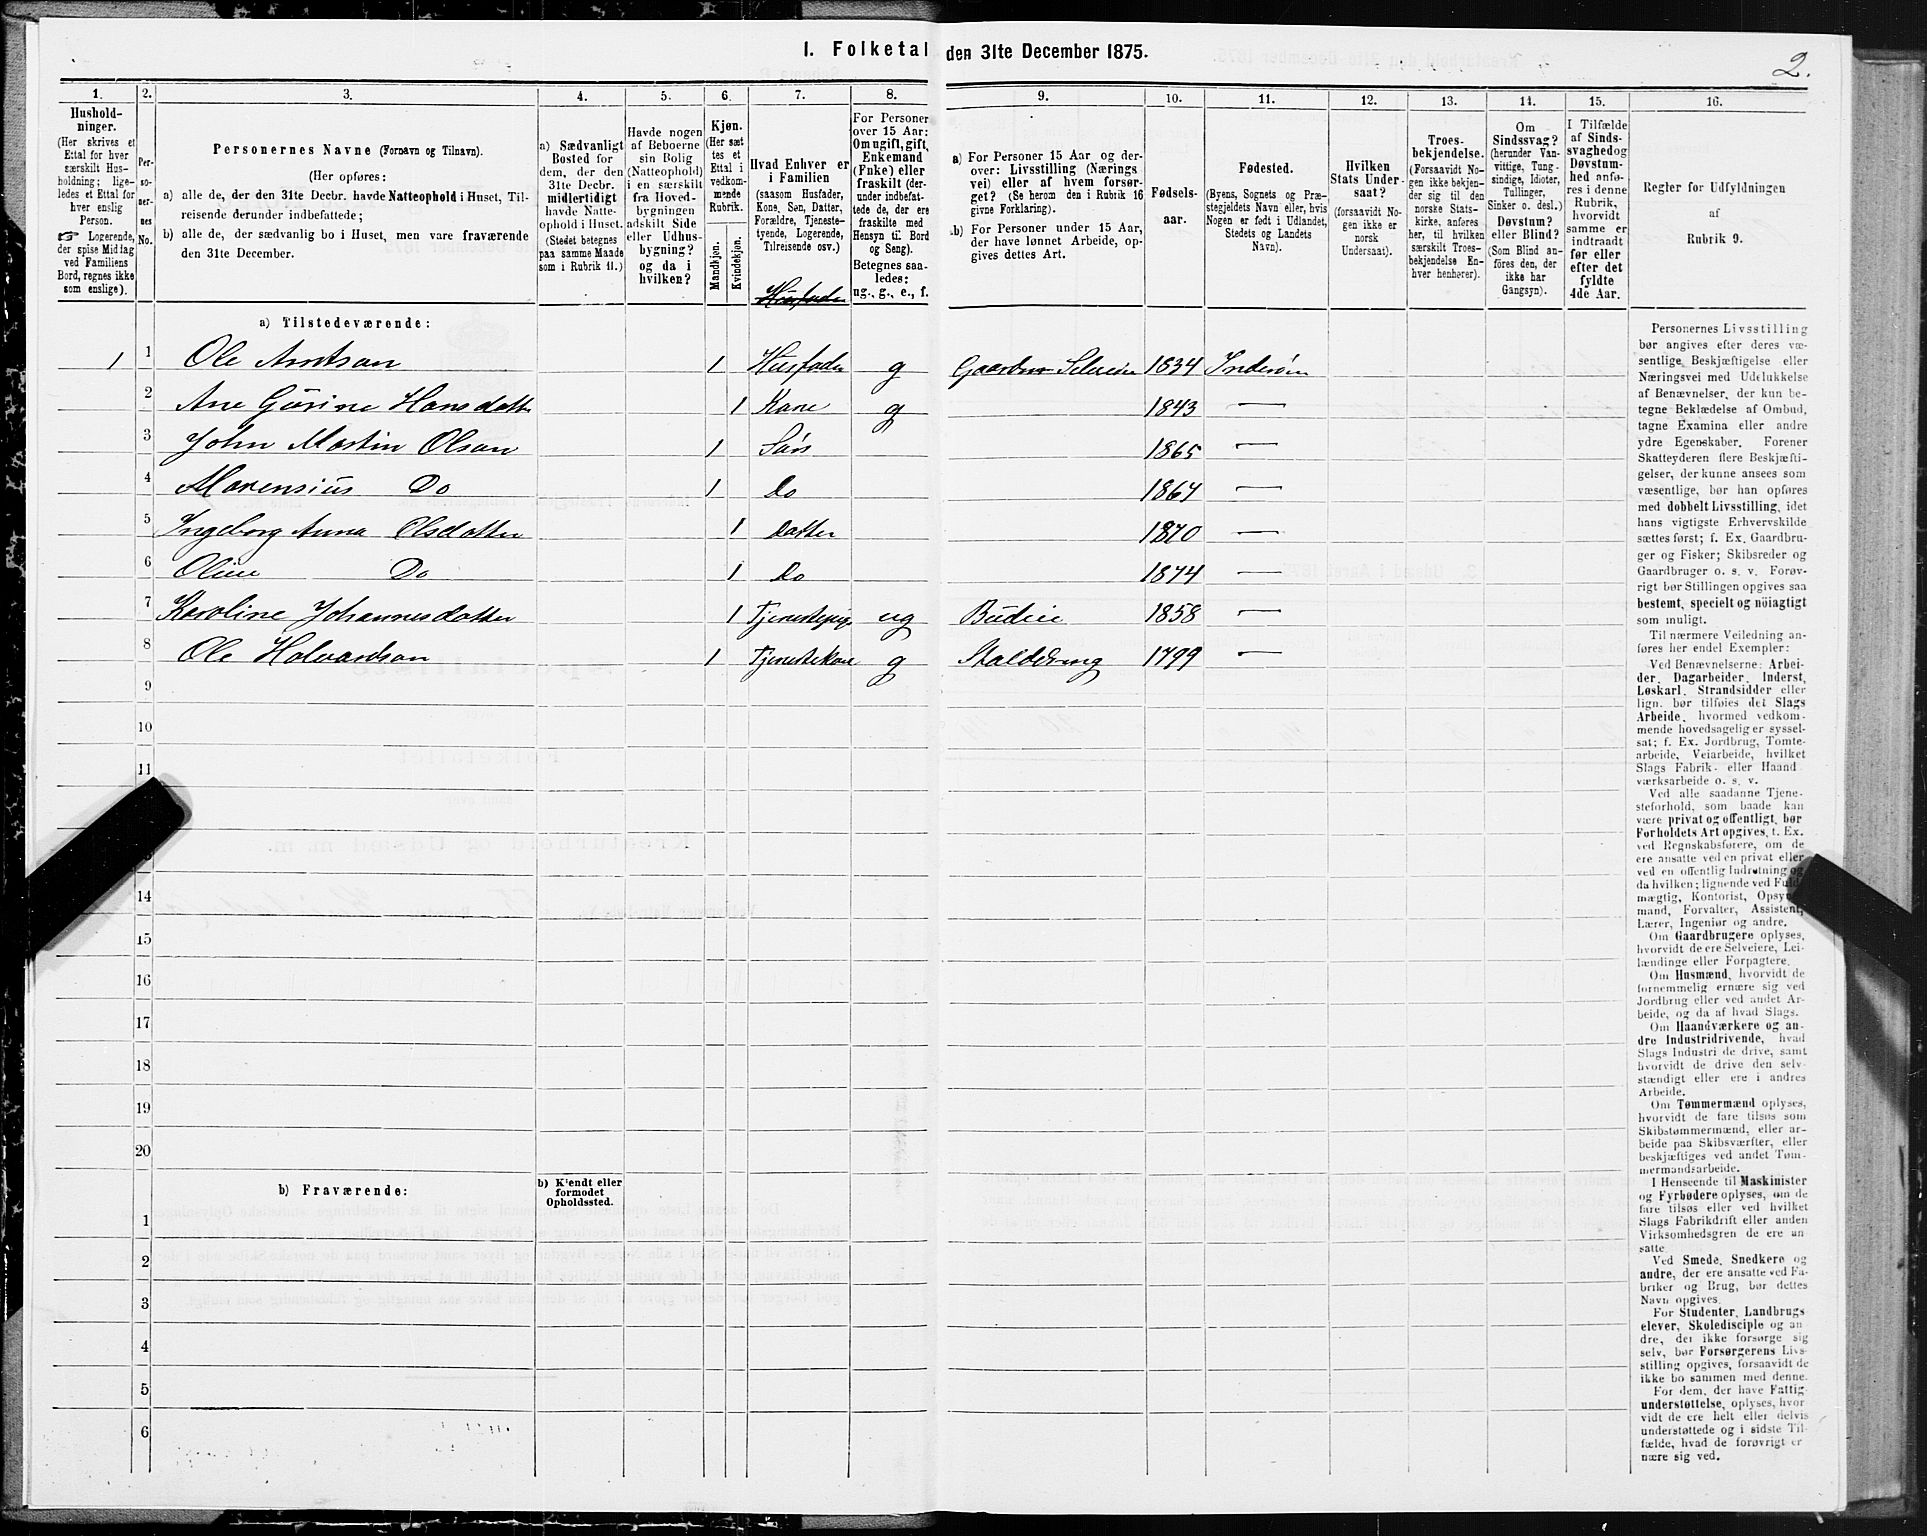 I. Folketal den 31te December 1875.
2.
1.
Hushold-
ninger.
(Her skrives et
Ettal for hver
særskilt Hus-
holdning; lige-
ledes et Ettal for
hver enslig
Person.
☞ Logerende,
der spise Middag
ved Familiens
Bord, regnes ikke
som enslige).
2.
Per-
so-
ner-
nes
No.
3.
Personernes Navne (Fornavn og Tilnavn).
(Her opføres:
a) alle de, der den 31te Decbr. havde Natteophold i Huset, Til-
reisende derunder indbefattede;
b) alle de, der sædvanlig bo i Huset, men vare fraværende
den 31te December.
4.
a) Sædvanligt
Bosted for
dem, der den
31te Decbr.
midlertidigt
havde Natte-
ophold i Huset.
(Stedet betegnes
paa samme Maade
som i Rubrik 11.)
5.
Havde nogen
af Beboerne
sin Bolig
(Natteophold)
i en særskilt
fra Hoved-
bygningen
adskilt Side
eller Udhus-
bygning?
og da i
hvilken?
6.
Kjøn.
(Her sæt
tes et
Ettal i
vedkom-
mende
Rubrik.
Mandkjøn.
Kvindekjøn.
7.
Hvad Enhver er
i Familien
(saasom Husfader,
Kone, Søn, Datter,
Forældre, Tjeneste-
tyende, Logerende,
Tilreisende osv.)
Husfader
8.
For Personer
over 15 Aar:
Om ugift, gift,
Enkemand
(Enke) eller
fraskilt (der-
under indbefat-
tede de, der ere
fraskilte med
Hensyn til Bord
og Seng).
Betegnes saa-
ledes:
ug., g., e., f.
9.
a) For Personer 15 Aar og der-
over: Livsstilling (Nærings
vei) eller af hvem forsør-
get? (Se herom den i Rubrik 16
givne Forklaring).
b) For Personer under 15 Aar,
der have lønnet Arbeide, op-
gives dettes Art.
10.
Fødsels-
aar.
11.
Fødested.
(Byens, Sognets og Præ-
stegjeldets Navn eller, hvis
Nogen er født i Udlandet,
Stedets og Landets
Navn).
12.
Hvilken
Stats Under-
saat?
(forsaavidt No-
gen ikke er
norsk
Undersaat).
13.
Troes-
bekjendelse.
(Forsaavidt No-
gen ikke bekjen-
der sig til den
norske Stats-
kirke, anføres
her, til hvilken
særskilt Troes-
bekjendelse En-
hver henhører).
14.
Om
Sindssvag?
(herunder Van-
vittige, Tung-
sindige, Idioter,
Tullinger,
Sinker o. desl.)
Døvstum?
eller Blind?
(Som Blind an-
føres den, der
ikke har
Gangsyn).
15.
I Tilfælde
af Sinds-
svaghed og
Døvstum-
hed anfø-
res i denne
Rubrik,
hvorvidt
samme er
indtraadt
før eller
efter det
fyldte
4de Aar.
16.
Regler for Udfyldningen
af
Rubrik 9.
a) Tilstedeværende:
1 1 Ole Arntsan 1 Husfader g Gaardbr Selveier 1834 Inderøen
2 Ane Gurine Hansdatter 1 Kone g 1843 —
3 John Martin Olsan 1 Søn 1865 —
4 Marensius Do 1 Do 1867 —
5 Ingeborg Anna Olsdatter 1 Datter 1870 —
6 Oline Do 1 Do 1874 —
7 Karoline Johannesdatter 1 Tjenestepige ug Budeie 1858 —
8 Ole Halvardsan 1 Tjenestekar g Stalddreng 1799 —
9
10
11
14
15
16
17
18
19
20
b) Fraværende:
b) Kjendt eller
formodet
Opholdssted.
1
2
3
4
5
6
Personernes Livsstilling
bør angives efter deres væ-
sentlige Beskjæftigelse eller
Næringsvei med Udelukkelse
af Benævnelser, der kun be-
tegne Beklædelse af Ombud,
tagne Examina eller andre
ydre Egenskaber. Forener
Skatteyderen flere Beskjæfti-
gelser, der kunne ansees som
væsentlige, bør han opføres
med dobbelt Livsstilling, idet
hans vigtigste Erhvervskilde
sættes først; f. Ex. Gaardbru-
ger og Fisker; Skibsreder og
Gaardbruger o. s. v. Forøv-
rigt bør Stillingen opgives saa
bestemt, specielt og nöiagtigt
som muligt.
Til nærmere Veiledning an-
føres her endel Exempler:
Ved Benævnelserne: Arbei-
der, Dagarbeider, Inderst,
Løskarl, Strandsidder eller
lign. bør tilføies det Slags
Arbeide, hvormed vedkom-
mende hovedsagelig er syssel-
sat; f. Ex. Jordbrug, Tomte-
arbeide, Veiarbeide, hvilket
Slags Fabrik- eller Haand
værksarbeide o. s. v.
Ved alle saadanne Tjene-
steforhold, som baade kan
være privat og offentligt, bør
Forholdets Art opgives, t. Ex.
ved Regnskabsførere, om de
ere ansatte ved en privat eller
ved en offentlig Indretning og
da hvilken; lignende ved Fuld
mægtig, Kontorist, Opsyns
mand, Forvalter, Assistent,
Lærer, Ingeniør og andre.
Om Gaardbrugere oplyses,
hvorvidt de ere Selveiere, Lei-
lændinge eller Forpagtere.
Om Husmænd, hvorvidt de
fornemmelig ernære sig ved
Jordbrug eller ved andet Ar-
beide, og da af hvad Slags.
Om Haandværkere og an-
dre Industridrivende, hvad
Slags Industri de drive, samt
hvorvidt de drive den selv-
stændigt eller ere i andres
Arbeide.
Om Tømmermænd oplyses,
hvorvidt de fare tilsøs som
Skibstømmermænd, eller ar-
beide paa Skibsværfter, eller
beskjæftiges ved andet Tøm-
mermandsarbeide.
I Henseende til Maskinister
og Fyrbødere oplyses, om de
fare tilsøs eller ved hvilket
Slags Fabrikdrift eller anden
Virksomhedsgren de ere an
satte
Ved Smede, Snedkere og
andre, der ere ansatte ved Fa-
briker og Brug, bør dettes
Navn opgives.
For Studenter, Landbrugs
elever, Skoledisciple og an
dre, der ikke forsørge sig
selv, bør Forsørgerens Livs-
stilling opgives, forsaavidt de
ikke bo sammen med denne.
For dem, der have Fattig-
understøttelse, oplyses, hvor
vidt de ere helt eller delvis
understøttede og i sidste Til-
fælde, hvad de forøvrigt er
nære sig ved.